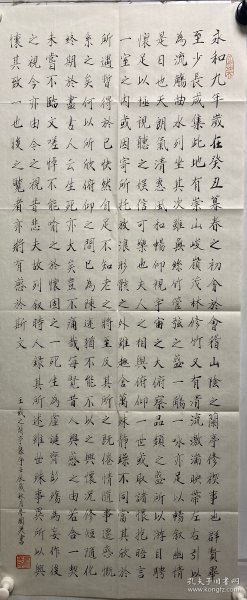 永和九年歲在癸丑暮春之初會于會稽山陰之蘭亭修禊事也群賢畢
至少長咸集此地有崇山峻嶺茂林修竹又有清流激湍映帶左右引以
為流觴曲水列坐其次雖無絲竹管弦之盛一觴一詠亦足以暢敘幽情
是日也天朗氣清惠風和暢仰觀宇宙之大俯察品類之盛所以遊目騁
懷足以極視聽之娛信可樂也夫人之相與俯仰一世或取諸懷抱晤言
一室之內或因寄所託放浪形骸之外雖趣舍萬殊靜躁不同當其欣於
所遇暫得於己快然自足不知老之將至及其所之既倦情隨事遷感慨
系之矣向之所欣俯仰之間已為陳迹猶不能不以之興懷況修短隨化
終期於盡古人云死生亦大矣豈不痛哉每覽昔人興感之由若合一契
未嘗不臨文嗟悼不能喻之於懷固知一死生為虛誕齊彭殤為妄作後
之視今亦由今之視昔悲夫故列敘時人錄其所述雖世殊事異所以興
懷其致一也後之覽者亦將有感於斯文
王羲之蘭亭集序
孔夫子旧书网